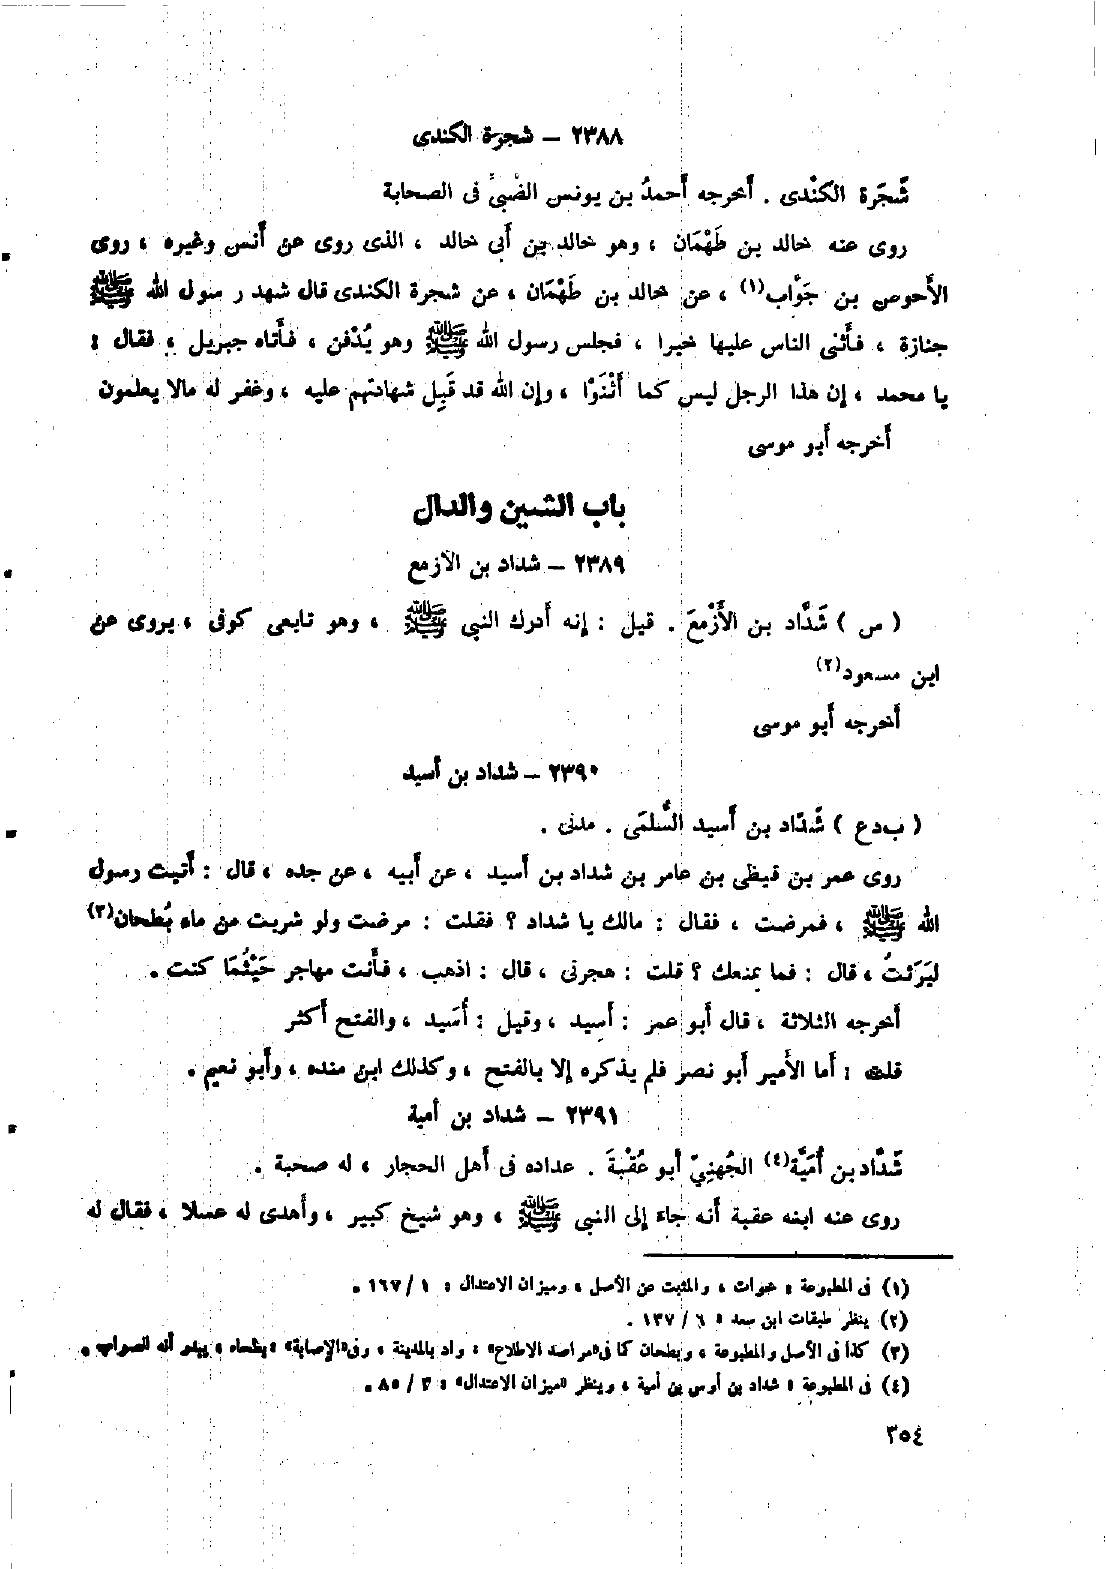 ٢٣٨٨ – شجرة الكندى
شَجَرة الكنْدى . أخرجه أحمدُ بن يونس الضبىّ فى الصحابة
روى عنه خالد بن طَهْمَان ، وهو خالد بن أبى خالد ، الذى روى عن أنس وغيره ، روى
الأحوص بن جَوَّاب(١) ، عن خالد بن طَهْمَان ، عن شجرة الكندى قال شهد رسول الله ﷺ
جنازة ، فأثنى الناس عليها خيرا ، فجلس رسول الله ﷺ وهو يُدْفن ، فأتاه جبريل ، فقال :
يا محمد ، إن هذا الرجل ليس كما أثْنَوْا ، وإن الله قد قَبِل شهادتهم عليه ، وغفر له مالا يعلمون
أخرجه أبو موسى
باب الشين والدال
٢٣٨٩ – شداد بن الأزمع
( س ) شَدَّاد بن الأَزْمَعَ . قيل : إنه أدرك النبى ﷺ ، وهو تابعى كوفى ، يروى عن
ابن مسعود(٢)
أخرجه أبو موسى
٢٣٩٠ – شداد بن أسيد
( ب د ع ) شَدّاد بن أسيد السُّلمَى . مدنى .
روى عمر بن قيظى بن عامر بن شداد بن أسيد ، عن أبيه ، عن جده ، قال : أتيت رسول
الله ﷺ ، فمرضت ، فقال : مالك يا شداد ؟ فقلت : مرضت ولو شربت من ماء بُطحان(٣)
لبَرَئتُ ، قال : فما يمنعك ؟ قلت : هجرتى ، قال : اذهب ، فأنت مهاجر حَيْثُمَا كنت .
أخرجه الثلاثة ، قال أبو عمر : أسِيد ، وقيل : أُسَيد ، والفتح أكثر
قلت : أما الأمير أبو نصر فلم يذكره إلا بالفتح ، وكذلك ابن منده ، وأبو نعيم .
٢٣٩١ – شداد بن أمية
شَدَّاد بن أُمَيَّة(٤) الجُهنِيّ أبو عُقْبةَ . عداده فى أهل الحجاز ، له صحبة .
روى عنه ابنه عقبة أنه جاء إلى النبى ﷺ ، وهو شيخ كبير ، وأهدى له عسلا ، فقال له
(١) فى المطبوعة : خوات ، والمثبت عن الأصل ، وميزان الاعتدال : ١ / ١٦٧ .
(٢) ينظر طبقات ابن سعد : ٦ / ١٣٧ .
(٣) كذا فى الأصل والمطبوعة ، وبطحان كما فى «مراصد الاطلاع» : واد بالمدينة ، وفى «الإصابة» : بطحاء ، ويبدو أنه الصواب .
(٤) فى المطبوعة : شداد بن أوس بن أمية ، وينظر «ميزان الاعتدال» : ٣ / ٨٥ .
٣٥٤